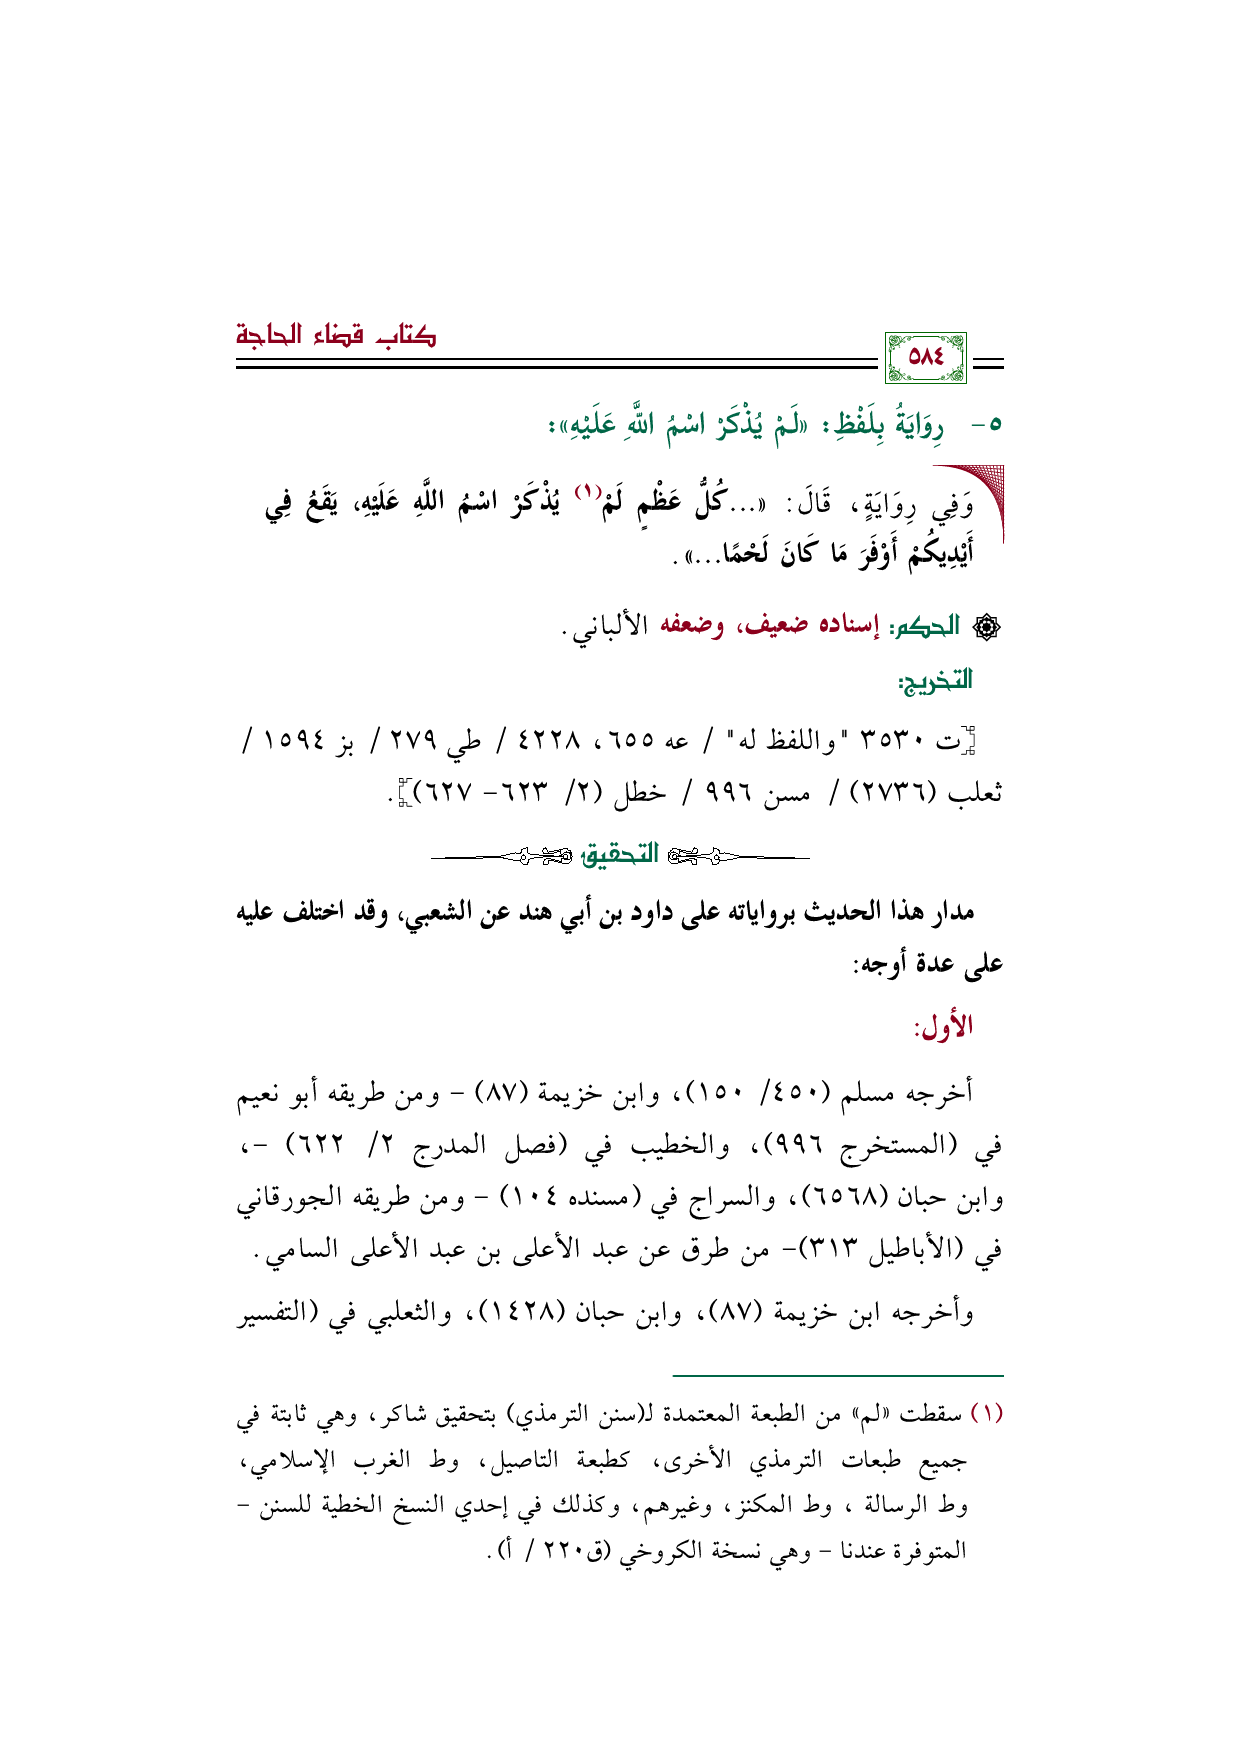 كتاب قضاء الحاجة
٥٨٤
٥- رِوَايَةُ بِلَفْظِ: «لَمْ يُذْكَرْ اسْمُ اللَّهِ عَلَيْهِ»:
وَفِي رِوَايَةٍ، قَالَ: «...كُلُّ عَظْمٍ لَمْ(١) يُذْكَرْ اسْمُ اللَّهِ عَلَيْهِ، يَقَعُ فِي
أَيْدِيكُمْ أَوْفَرَ مَا كَانَ لَحْمًا...».
الحكم: إسناده ضعيف، وضعفه الألباني.
التخريج:
[ت ٣٥٣٠ "واللفظ له" / عه ٦٥٥، ٤٢٢٨ / طي ٢٧٩ / بز ١٥٩٤ /
ثعلب (٢٧٣٦) / مسن ٩٩٦ / خطل (٢/ ٦٢٣- ٦٢٧)].
التحقيق
مدار هذا الحديث برواياته على داود بن أبي هند عن الشعبي، وقد اختلف عليه
على عدة أوجه:
الأول:
أخرجه مسلم (٤٥٠/ ١٥٠)، وابن خزيمة (٨٧) - ومن طريقه أبو نعيم
في (المستخرج ٩٩٦)، والخطيب في (فصل المدرج ٢/ ٦٢٢) -،
وابن حبان (٦٥٦٨)، والسراج في (مسنده ١٠٤) - ومن طريقه الجورقاني
في (الأباطيل ٣١٣)- من طرق عن عبد الأعلى بن عبد الأعلى السامي.
وأخرجه ابن خزيمة (٨٧)، وابن حبان (١٤٢٨)، والثعلبي في (التفسير
(١) سقطت «لم» من الطبعة المعتمدة لـ(سنن الترمذي) بتحقيق شاكر، وهي ثابتة في
جميع طبعات الترمذي الأخرى، كطبعة التاصيل، وط الغرب الإسلامي،
وط الرسالة ، وط المكنز، وغيرهم، وكذلك في إحدي النسخ الخطية للسنن -
المتوفرة عندنا - وهي نسخة الكروخي (ق٢٢٠ / أ).